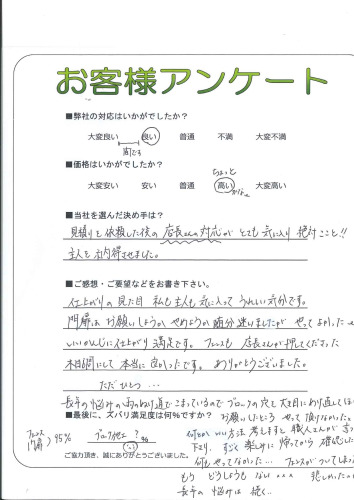 お客様アンケート
■弊社の対応はいかがでしたか?
大変良い 良い 普通 不満 大変不満
間です
■価格はいかがでしたか?
ちょっと
大変安い 安い 普通 高い 大変高い
かな〜
■当社を選んだ決め手は?
見積りを依頼した後の店長さんの対応がとても気に入り 絶対ここと!!
主人を納得させました。
■ご感想・ご要望などをお書き下さい。
仕上がりの見た目 私も主人も気に入って うれしい気分です。
門扉は お願いしようか やめようか 随分迷いましたが やってよかった
いいかんじに仕上がり満足です。フェンスも 店長さんが押してくださった
木目調にして 本当に良かったです。ありがとうございました。
ただひとつ…
長年の悩みの 雨の通り道でこまっているので ブロックの穴を大き目にあけ直してほ
■最後に、ズバリ満足度は何%ですか? お願いしたところ やって頂けなかった。
フェンス 門扉 > 95% ブロック他は ? %
何か 方法 考えますと 職人さんが言って
下さり、すごく 楽しみに 帰ってから 確認した
ご協力頂き、誠にありがとうございました。
何もやってなかった… フェンスがついてしまっ
もう どうしようもない ××× 悲しかった
長年の悩みは 続く…